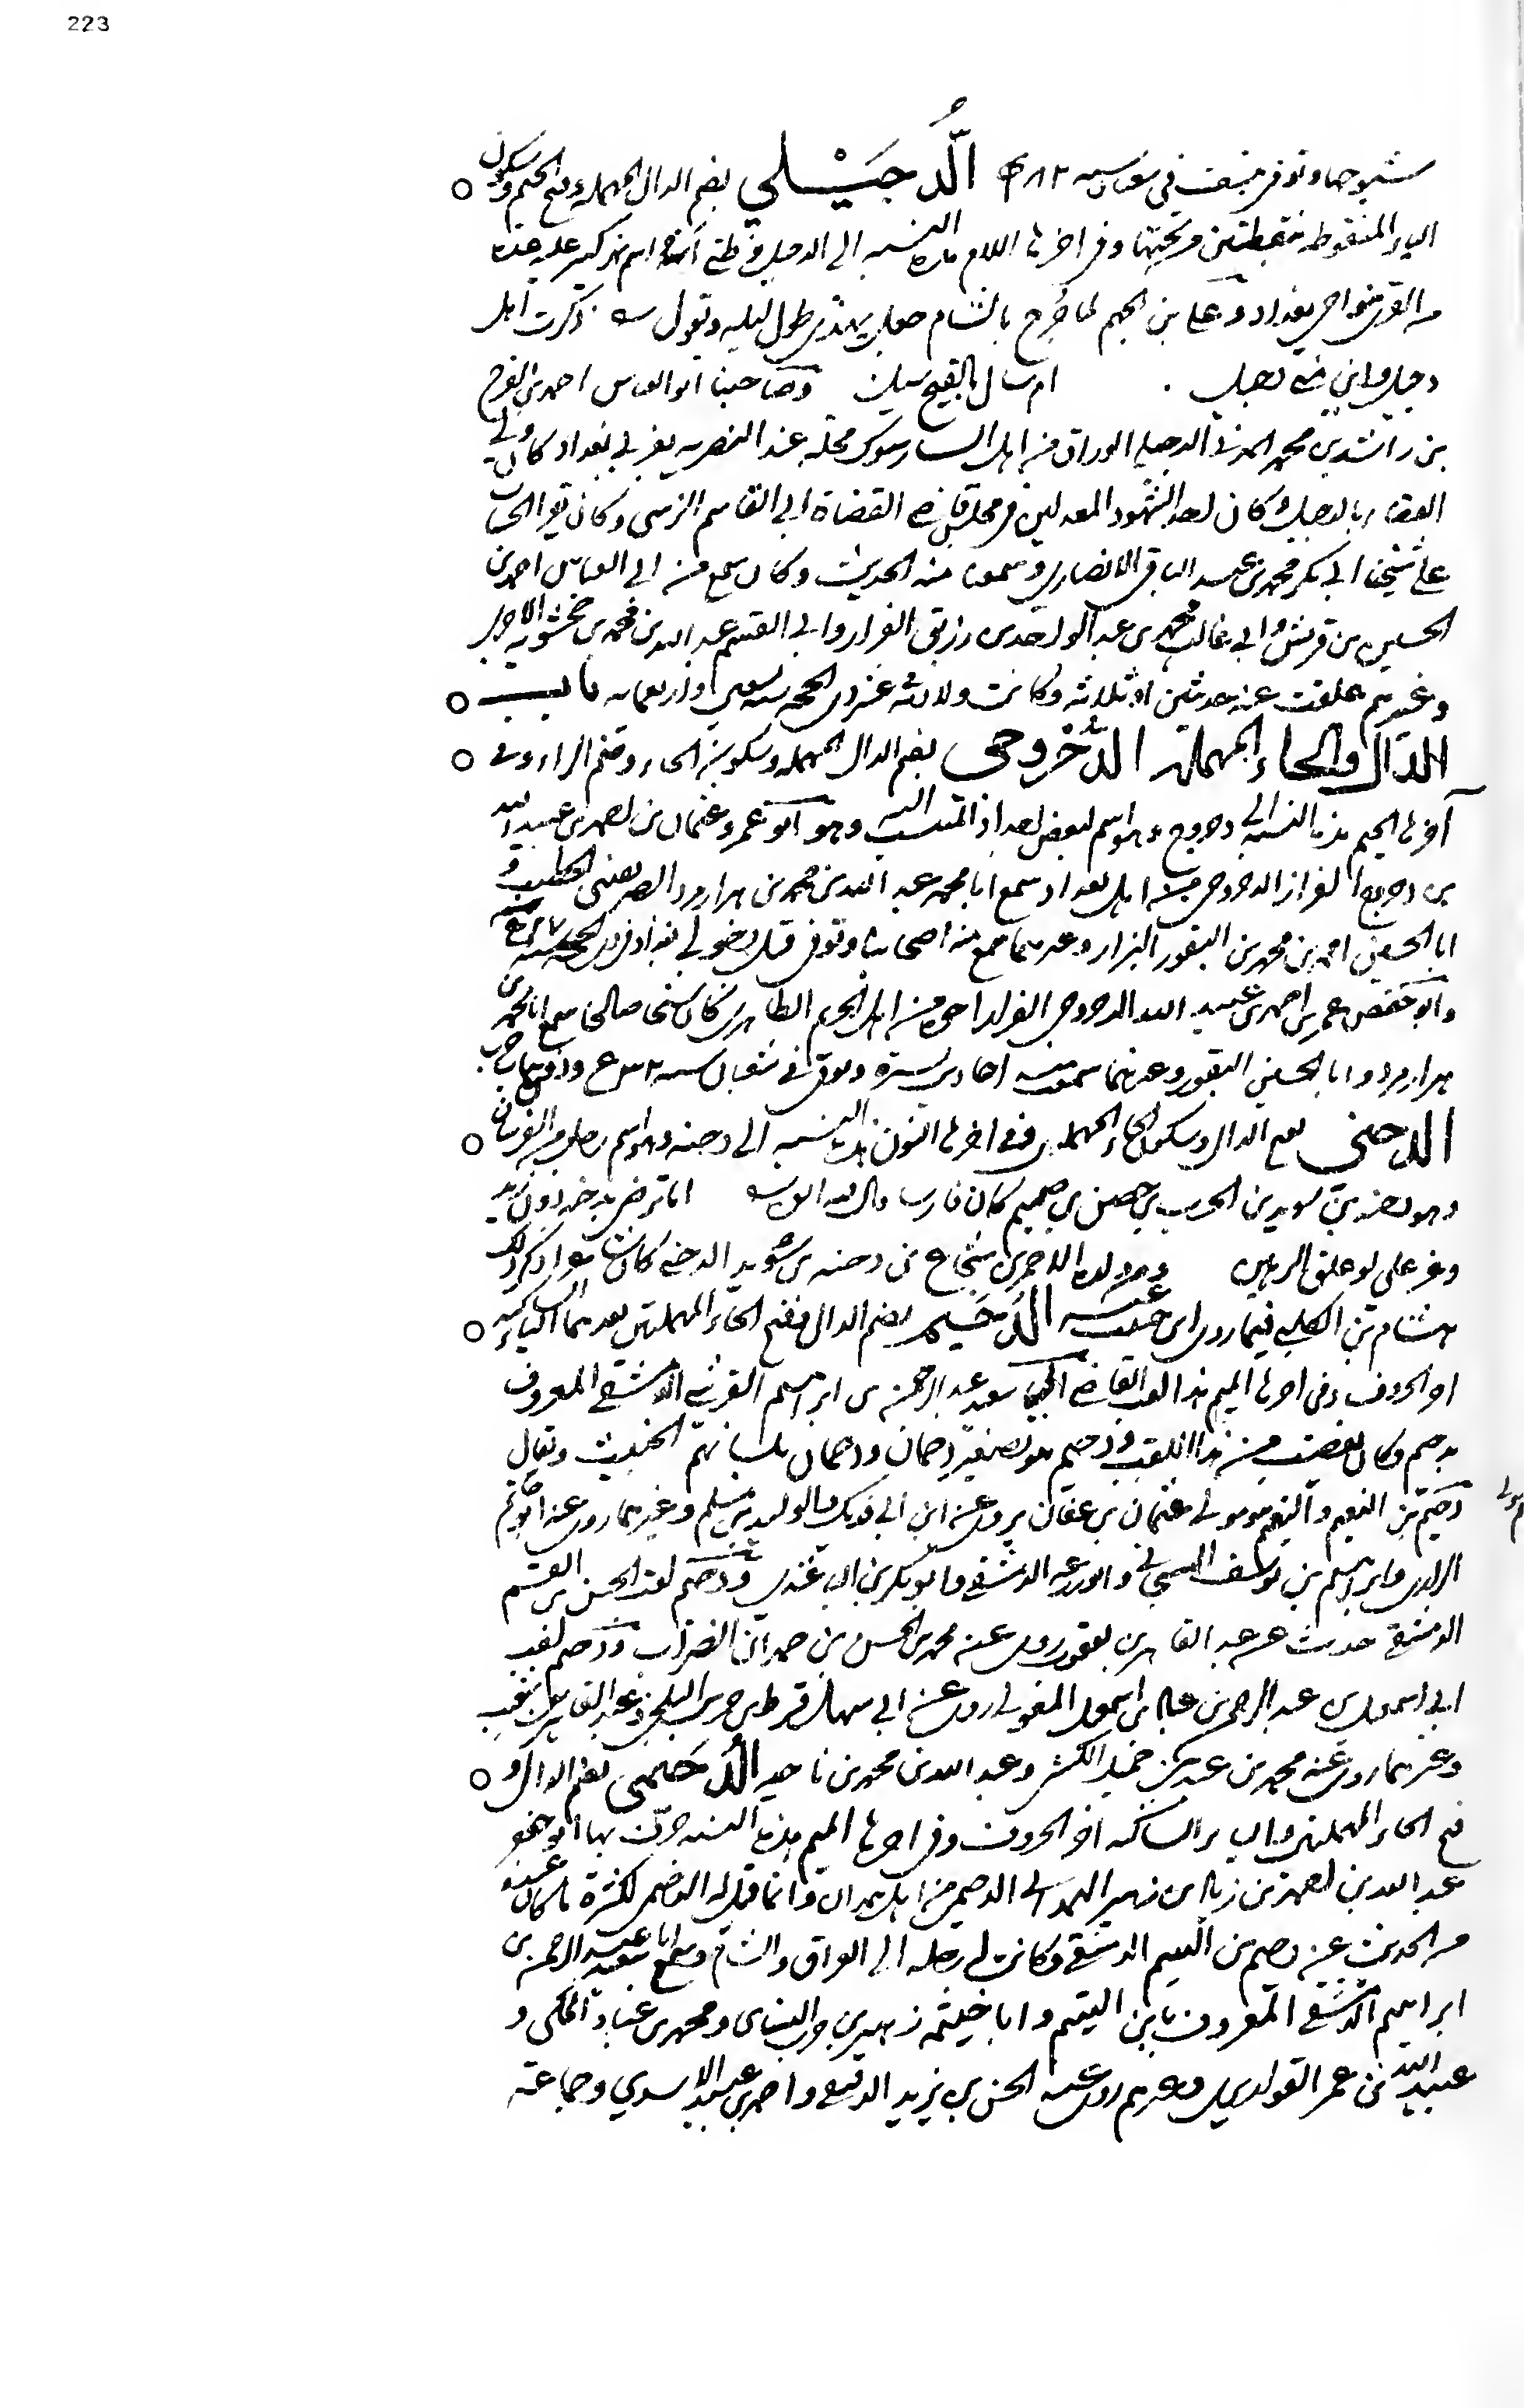 223
شيوخها وتوفى بنسف في شعبان سنه الدُّجَيْلي بضم الدال المهملة وفتح الجيم وسكون
الياء المنقوطه بنقطتين من تحتها وفي اخرها اللام هذه النسبه الى الدجيل في ظني انه اسم نهر كبير عليه عدة
من القرى بنواحي بغداد وعلي بن الجهم لما خرج بالشام جعل يهذي طول ليلته ويقول ذكرت اهل
دجيل واين مني دجيل ام سال بالصبح سيل وصاحبنا ابو العباس احمد بن الفرج
بن راشد بن محمد المدني الدجيلي الوراق من اهل محله عند النصريه بغربي بغداد كان ولي
القضاء بالدجيل وكان احد الشهود المعدلين في مجلس قاضي القضاة ابي القاسم الزينبي وكان يقرأ الحساب
على شيخنا ابي بكر محمد بن عبد الباقي الانصاري وسمعوا منه الحديث وكان سمع من ابي العباس احمد بن
الحسين بن قريش وابي غالب محمد بن عبد الواحد بن رزيق القزاز وابي القسم عبد الله بن محمد بن
وغيرهم علقت عنه حديثين او ثلاثه وكانت ولادته في عشر ذي الحجه سنه تسعين واربعمايه باب
الدال والحاء المهملة الدُّحْروجي بضم الدال المهمله وسكون الحاء وضم الراء وفي
آخرها الجيم هذه النسبه الى دحروج وهو اسم لبعض اجداد المنتسب اليه وهو ابو عمرو عثمان بن احمد بن عبيد الله
بن دحروج القزاز الدحروجي من اهل بغداد سمع ابا محمد عبد الله بن محمد بن هزارمرد الصريفيني الخطيب و
ابا الحسين احمد بن محمد بن النقور البزاز وغيرهما سمع منه اصحابنا وتوفي قبل دخولي بغداد في ذي الحجه سنه
وابو حفص عمر بن احمد بن عبيد الله الدحروجي القزاز اخوه من اهل الحريم الطاهري كان شيخا صالحا سمع ابا محمد بن
هزارمرد وابا الحسين النقور وغيرهما سمعت منه احاديث يسيرة وتوفى في شعبان سنه ودفن بباب حرب
الدحني بفتح الدال وسكون الحاء المهملة وفي اخرها النون هذه النسبه الى دحنه وهو اسم رجل من الفرسان
وهو دحنه بن سويد بن الحرب بن حصن بن ضمضم كان فارسا
وغر على لو علق الرهين ومن ولده الاحمر بن شجاع بن دحنه بن سويد الدحني كان شاعرا ذكر ذلك
هشام بن الكلبي فيما روى ابن حبيب عنه الدُحَيم بضم الدال وفتح الحاء المهملتين بعدهما الياء الساكنه
اخر الحروف وفي اخرها الميم هذا لقب القاضي ابي سعيد عبد الرحمن بن ابراهيم القرشي الدمشقي المعروف
بدحيم وكان يغضب من هذا اللقب ودحيم هو تصغير دحمان ودحمان بلسانهم الخبيث ويقال
دحيم بن اليتيم واليتيم هو مولى عثمان بن عفان يروي عن ابن ابي فديك والوليد بن مسلم وغيرهما روى عنه ابو حاتم
الرازي وابراهيم بن يوسف الهسنجاني وابو زرعه الدمشقي وابو بكر بن الباغندي ودحيم لقب الحسن بن القسم
الدمشقي حدث عن عبد القاهر بن يعقوب روى عنه محمد بن الحسن بن حمدان الضراب ودحيم لقب
ابي اسمعيل بن عبد الرحمن بن عباد بن اسمعيل المعولي روى عن ابي سهل قرط بن حريث البلخي وعبد القاهر بن شعيب
وغيرهما روى عنه محمد بن عبدك بن خميد الكشي وعبد الله بن محمد بن ناجيه الدُحَيمي بضم الدال و
فتح الحاء المهملتين والياء الساكنه اخر الحروف وفي اخرها الميم هذه النسبه عرف بها ابو جعفر
عبد الله بن احمد بن زياد بن زهير الهمداني الدحيمي من اهل همدان وانما قيل له الدحيمي لكثرة ما كان عنده
من الحديث عن دحيم بن اليتيم الدمشقي وكانت له رحله الى العراق والشام وسمع ابا سعيد عبد الرحمن بن
ابراهيم الدمشقي المعروف بابن اليتيم وابا خيثمه زهير بن حرب النساي ومحمد بن عباد المكي و
عبيد الله بن عمر القواريري وغيرهم روى عنه الحسن بن يزيد الدقيقي واحمد بن عبيد الاسدي وجماعة